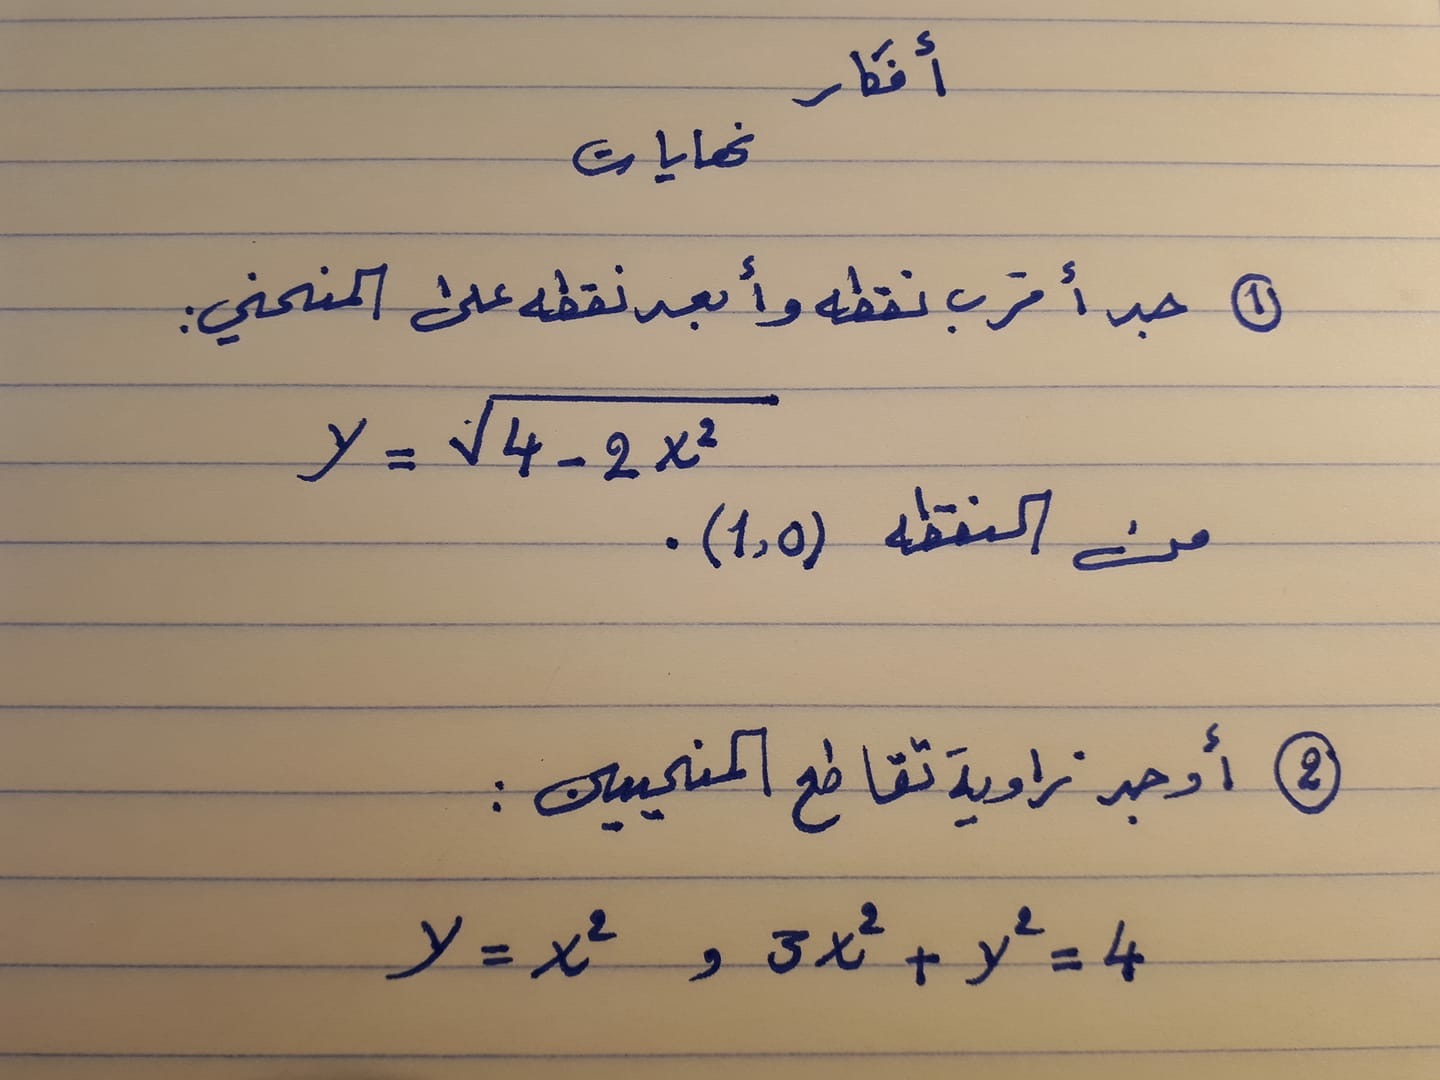 أفكار
نهايات
① جد أقرب نقطه وأبعد نقطه على المنحني:
y = √4-2x²
من النقطه (1,0).
② أوجد زاوية تقاطع المنحيين :
y = x² , 3x² + y² = 4